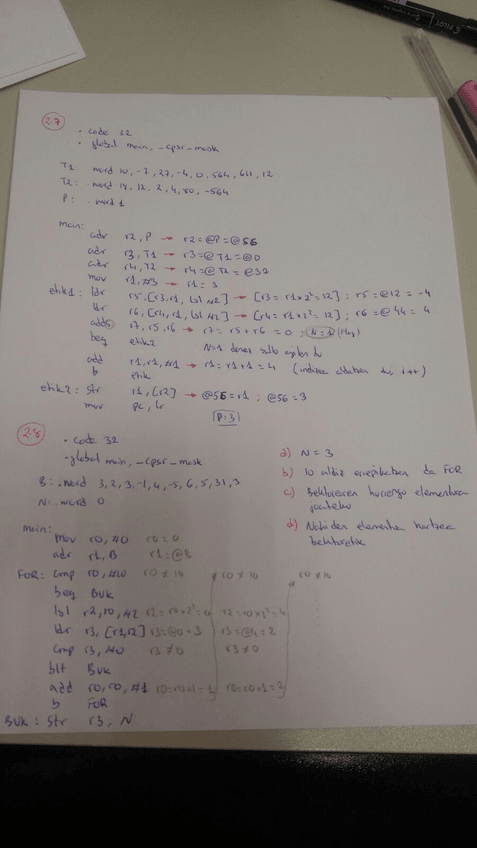 27
· code 32
· global main, _cpsr_mask
T1: .word 10, -7, 27, -4, 0, 564, 611, 12
T2: .word 14, 12, 2, 4, 80, -564
P: .word 1
main:
adr r2, P → r2 = @P = @56
adr r3, T1 → r3 = @T1 = @0
adr r4, T2 → r4 = @T2 = @32
mov r1, #3 → r1 = 3
etik1: ldr r5, [r3, r1, lsl #2] → [r3 = r1×2² = 12] ; r5 = @12 = -4
ldr r6, [r4, r1, lsl #2] → [r4 = r1×2² = 12] ; r6 = @44 = 4
adds r7, r5, r6 → r7 = r5 + r6 = 0 ; N=1 (flag)
beq etik2 N=1 denez salto egiten du
add r1, r1, #1 → r1 = r1+1 = 4 (indizea aldatzen du, i++)
b etik
etik2: str r1, [r2] → @56 = r1 ; @56 = 3
mov pc, lr
P=3
28
· code 32
· global main, _cpsr_mask
B: .word 3, 2, 3, -1, 4, -5, 6, 5, 31, 3
N: .word 0
main:
mov r0, #0 r0 = 0
adr r1, B r1 = @B
FOR: cmp r0, #10 r0 ≠ 10 r0 ≠ 10 r0 ≠ 10
beq BUK
lsl r2, r0, #2 r2 = r0×2² = 0 r2 = r0×2² = 4
ldr r3, [r1, r2] r3 = @0 = 3 r3 = @4 = 2
cmp r3, #0 r3 ≠ 0 r3 ≠ 0
blt BUK
add r0, r0, #1 r0 = r0+1 = 1 r0 = r0+1 = 2
b FOR
BUK: str r3, N
a) N = 3
b) 10 aldiz errepikatzen da FOR
c) Bektorearen hurrengo elementura joateko
d) elementua hartzea bektoretik